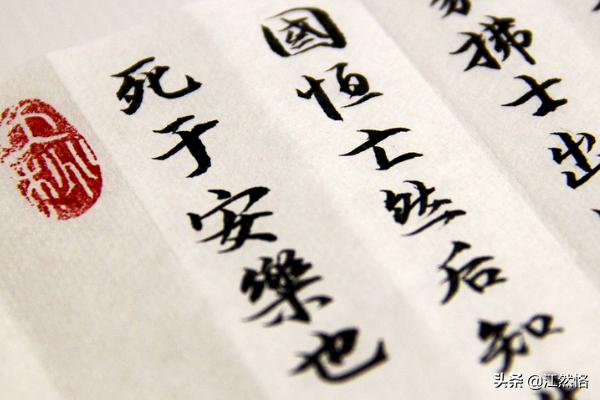 拂士出
國恒亡然后知
死于安樂也
头条 @江然恪